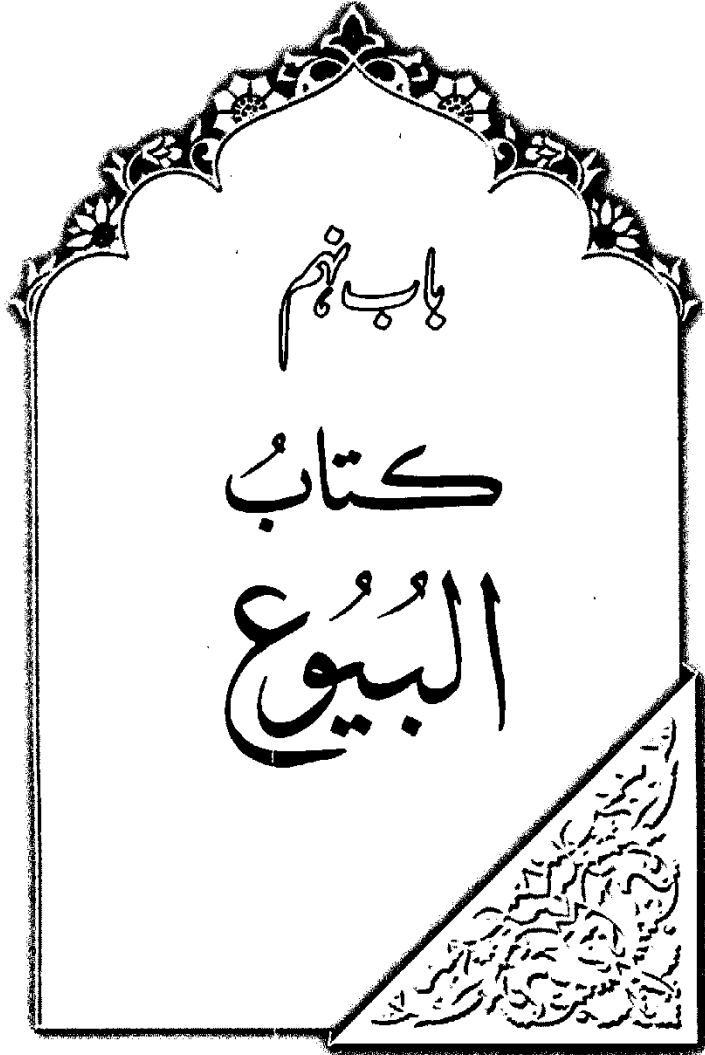 باب نہم
كتابُ
البُيُوع